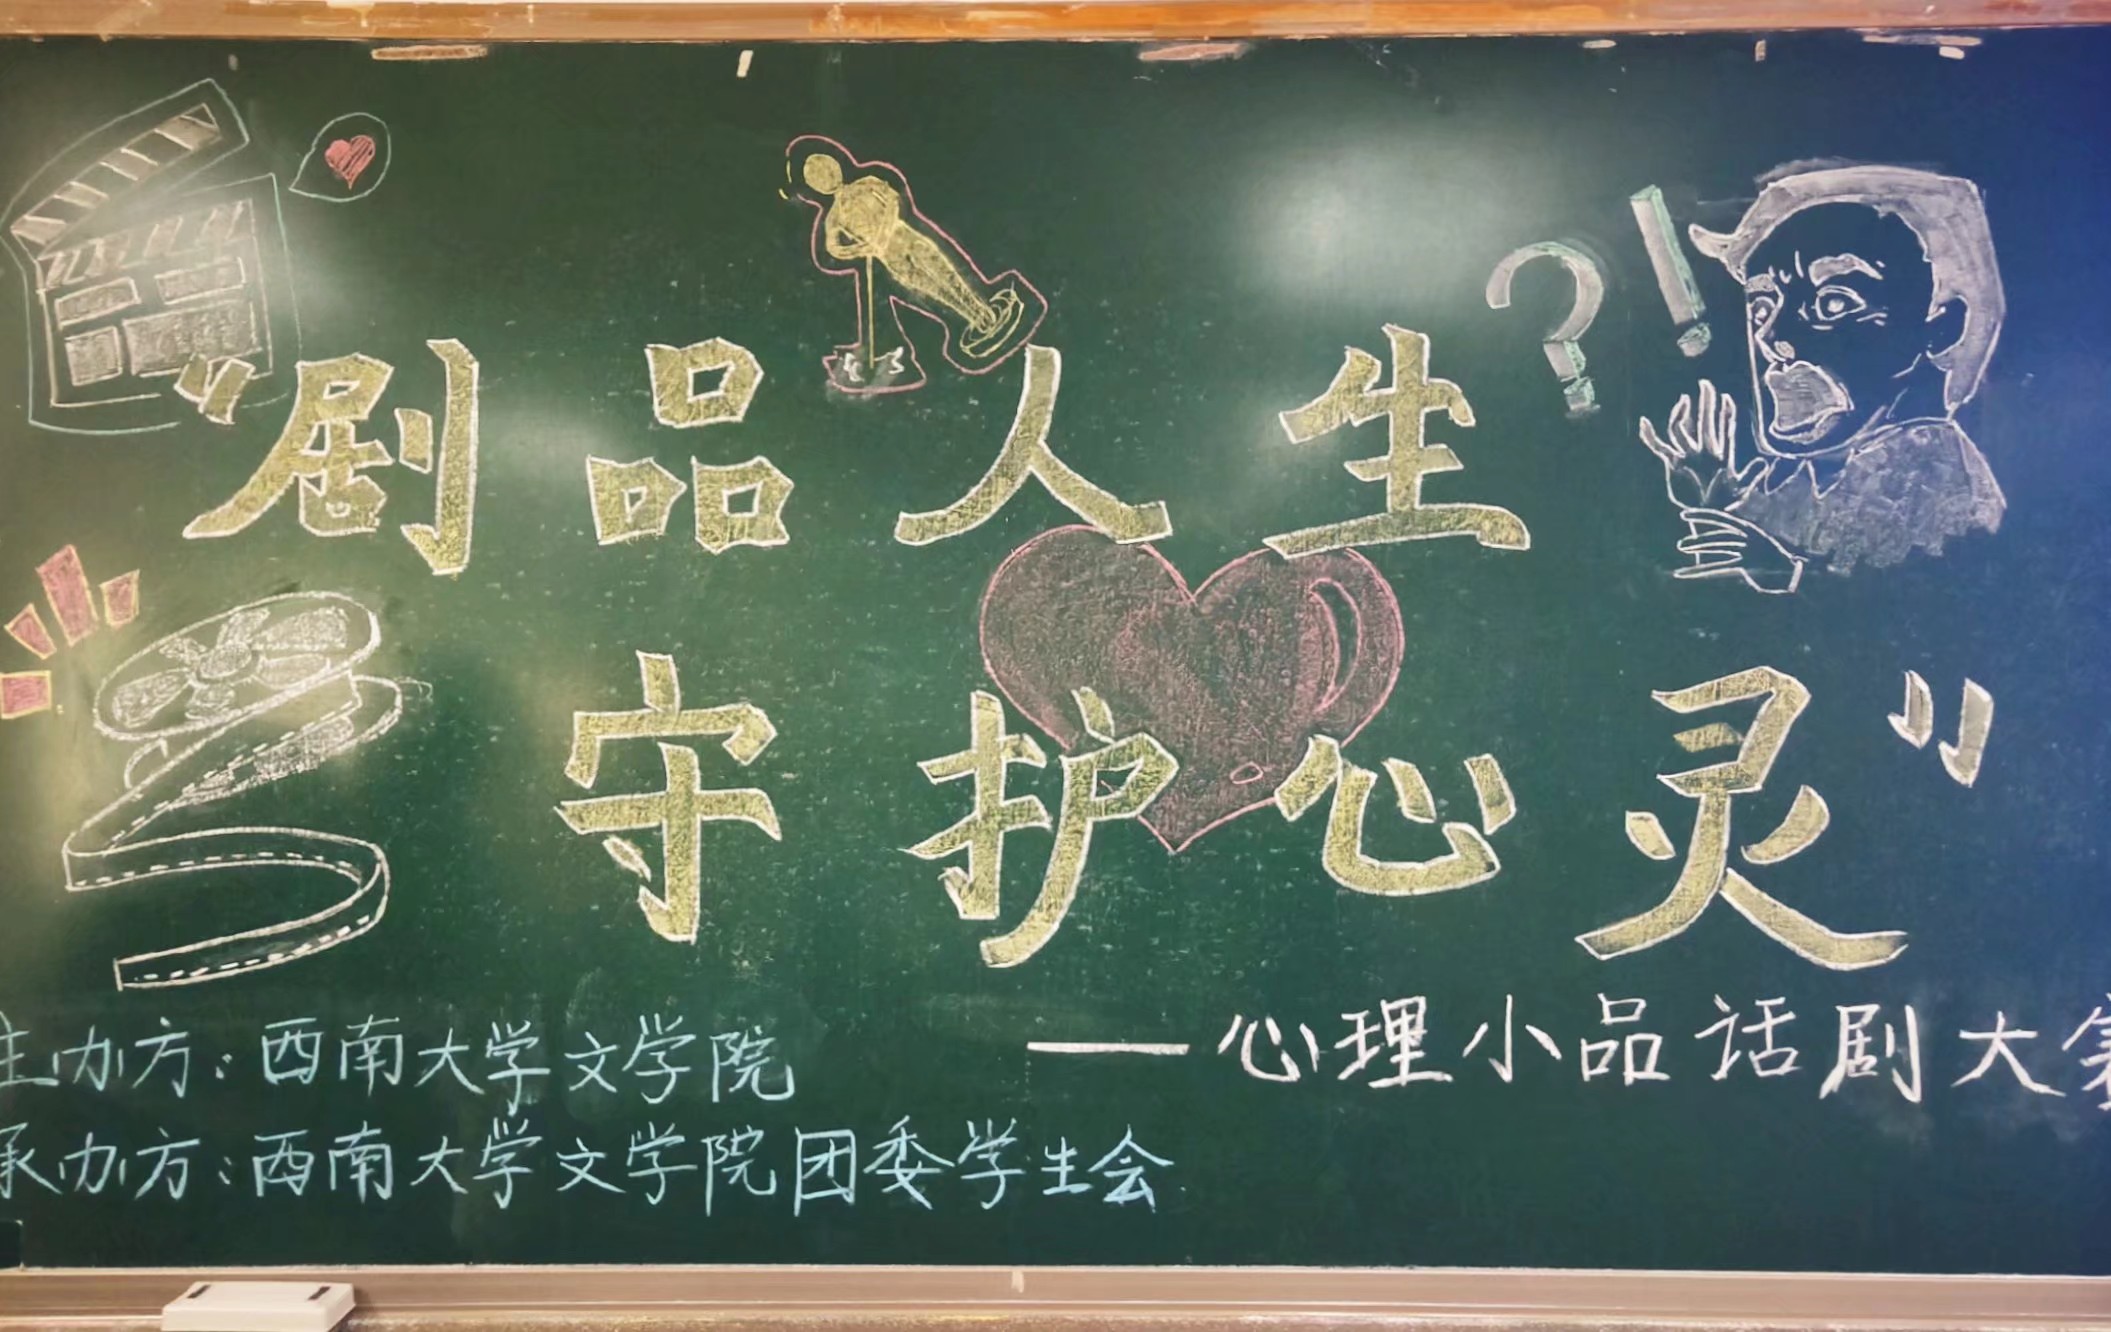 “剧品人生
守护心灵”
——心理小品话剧大赛
主办方:西南大学文学院
承办方:西南大学文学院团委学生会